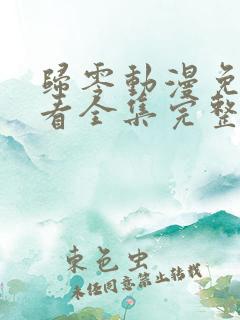 歸零動漫免
看全集完整
束色虫
未经同意禁止转载